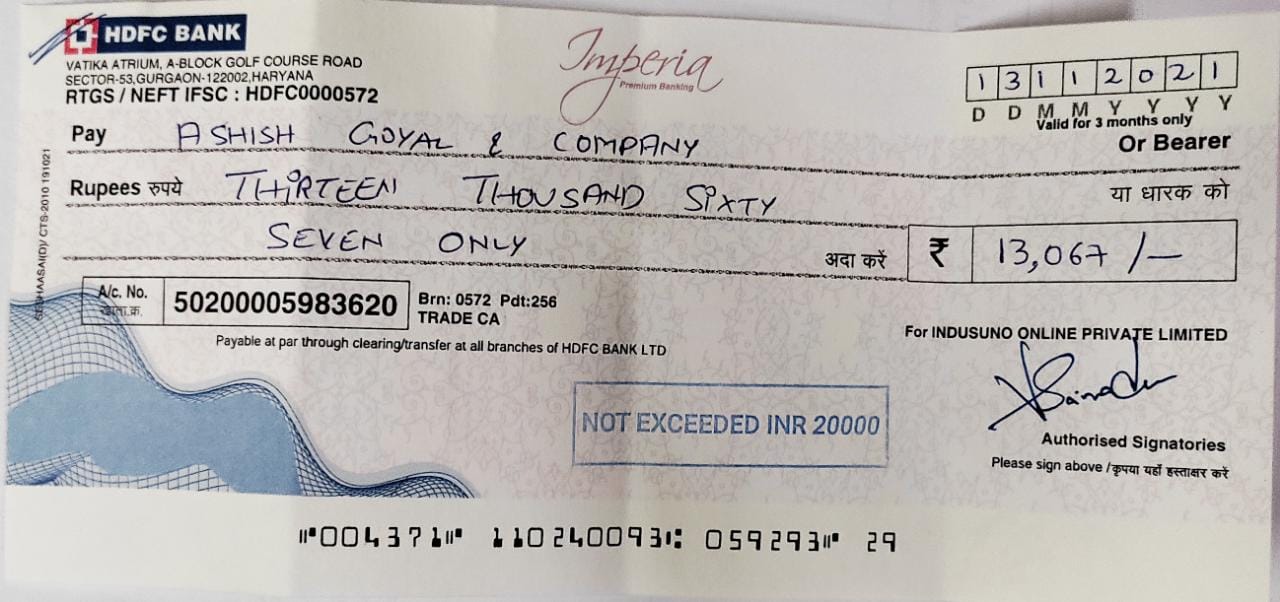 HDFC BANK
VATIKA ATRIUM, A-BLOCK GOLF COURSE ROAD
SECTOR-53,GURGAON-122002,HARYANA
RTGS / NEFT IFSC : HDFC0000572
Imperia
Premium Banking
1 3 1 1 2 0 2 1
D D M M Y Y Y Y
Valid for 3 months only
Pay ASHISH GOYAL & COMPANY Or Bearer
Rupees रुपये THIRTEEN THOUSAND SIXTY या धारक को
SEVEN ONLY अदा करें ₹ 13,067 /-
CTS-2010 191021
A/c. No. 50200005983620 Brn: 0572 Pdt:256
TRADE CA
Payable at par through clearing/transfer at all branches of HDFC BANK LTD
For INDUSUNO ONLINE PRIVATE LIMITED
NOT EXCEEDED INR 20000
Authorised Signatories
Please sign above / कृपया यहाँ हस्ताक्षर करें
⑈004371⑈ 110240093⑆ 059293⑈ 29